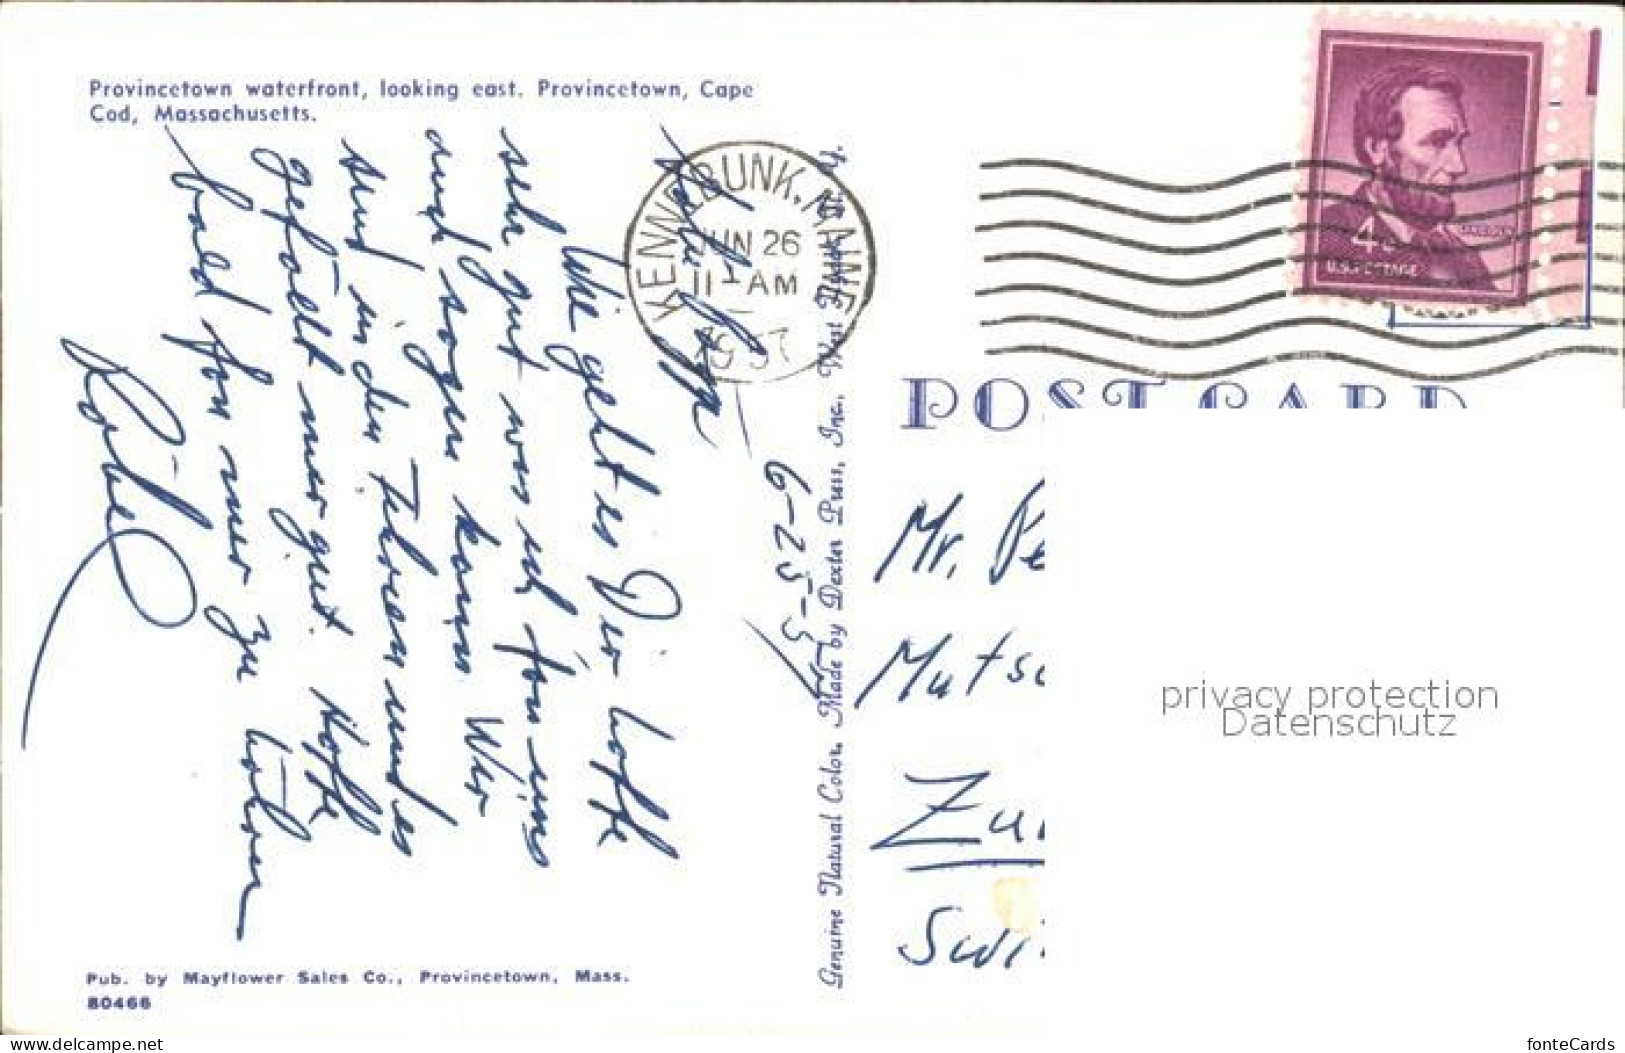 Provincetown waterfront, looking east. Provincetown, Cape
Cod, Massachusetts.
6-25-57
Wie geht es Dir hoffe
sehr gut was ich von uns
auch sagen kann. Wir
sind in den Ferien und es
gefällt mir gut. Hoffe
bald von mir zu hören
Pub. by Mayflower Sales Co., Provincetown, Mass.
80466
Genuine Natural Color. Made by Dexter Press, Inc., West Nyack, N. Y.
KENNEBUNK, MAINE
JUN 26
11 - AM
LINCOLN
4c
U.S. POSTAGE
POST CARD
Mr. Pe
Muts
Zu
Swi
privacy protection
Datenschutz
www.delcampe.net
fonteCards